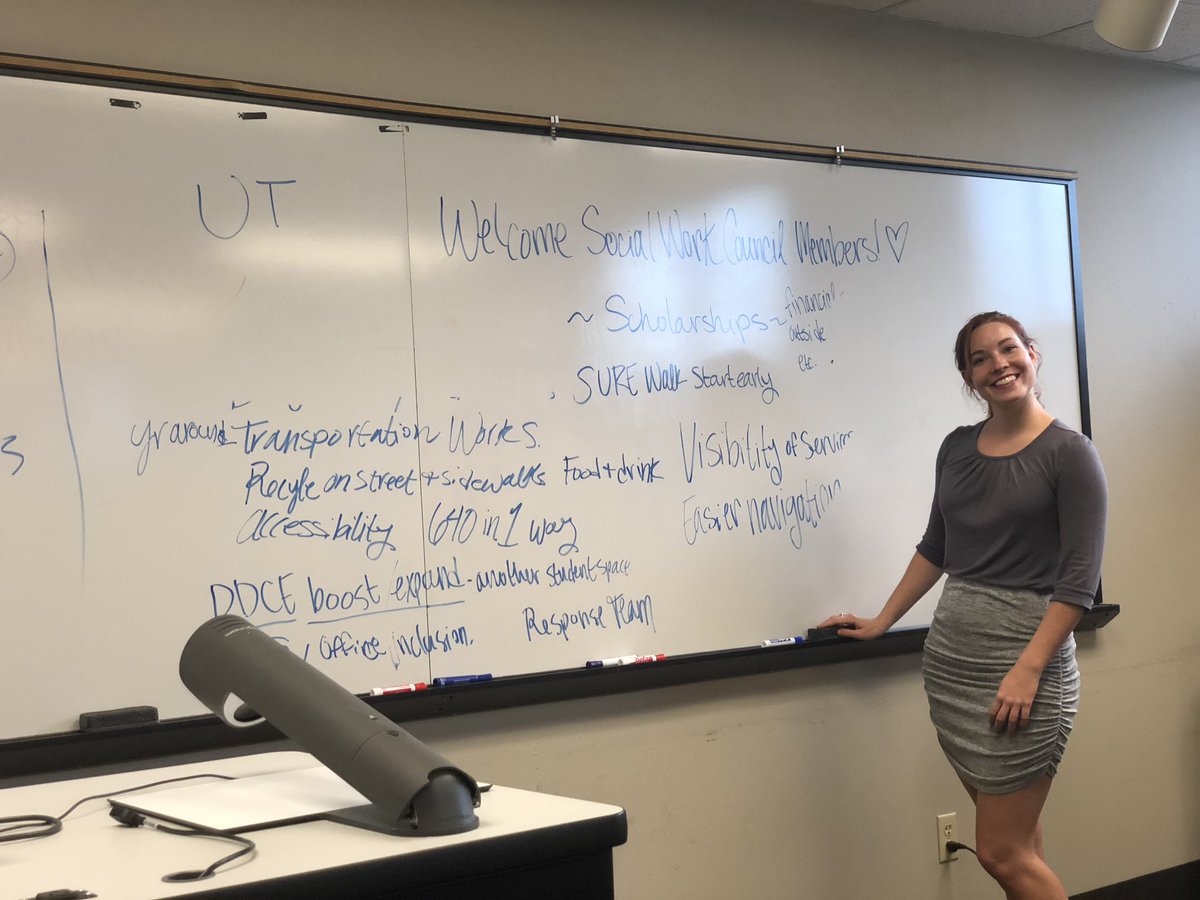 UT
Welcome Social Work Council Members! ♡
~ Scholarships ~ financial
outside
etc.
SURE Walk Start early
yr around Transportation Works.
Recyle on street + sidewalks Food + drink
accessibility 1 way
Visibility of
Easier navigation
DDCE boost expand - another student space
, office inclusion.
Response Team
3